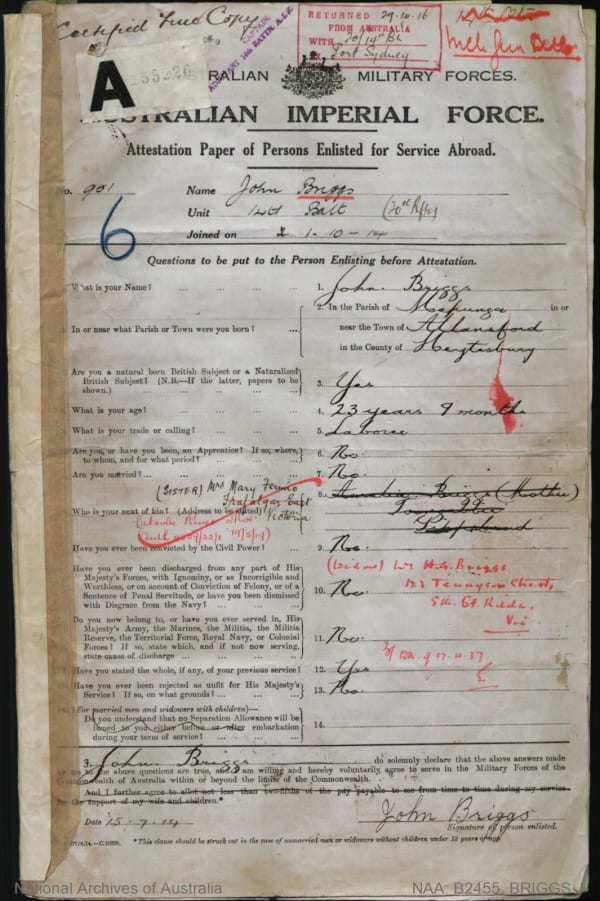 Certified True Copy
CAPTAIN.
ADJUTANT 14th BATTN. A.I.F.
RETURNED 29-10-16
FROM AUSTRALIA
WITH 20/14th Bn
Port Sydney
A
AUSTRALIAN MILITARY FORCES.
AUSTRALIAN IMPERIAL FORCE.
Attestation Paper of Persons Enlisted for Service Abroad.
No. 901 Name John Briggs
Unit 14th Batt
Joined on 1-10-14
6
Questions to be put to the Person Enlisting before Attestation.
What is your Name? ... ... ... ... 1. John Briggs
2. In the Parish of Mepunga in or
In or near what Parish or Town were you born? ... near the Town of Allansford
in the County of Heytesbury
Are you a natural born British Subject or a Naturalized
British Subject? (N.B.—If the latter, papers to be
shown.) ... ... ... ... 3. Yes
What is your age? ... ... ... ... 4. 23 years 9 months
What is your trade or calling? ... ... ... 5. Laborer
Are you, or have you been, an Apprentice? If so, where,
to whom, and for what period? ... ... ... 6. No.
Are you married? ... ... ... ... 7. No.
(SISTER) Mrs Mary
Trafalgar East
Victoria
Who is your next of kin? (Address to be stated) 8. Briggs (Mother)
Gippsland
Latrobe River
Have you ever been convicted by the Civil Power? ... 9. No.
(Widow) Mrs Briggs
123 Tennyson Street,
Sth. St. Kilda,
Vic.
Have you ever been discharged from any part of His
Majesty's Forces, with Ignominy, or as Incorrigible and
Worthless, or on account of Conviction of Felony, or of a
Sentence of Penal Servitude, or have you been dismissed
with Disgrace from the Navy? ... ... ... 10. No.
Do you now belong to, or have you ever served in, His
Majesty's Army, the Marines, the Militia, the Militia
Reserve, the Territorial Force, Royal Navy, or Colonial
Forces? If so, state which, and if not now serving,
state cause of discharge ... ... ... 11. No.
17.11.37
Have you stated the whole, if any, of your previous service? 12. Yes
Have you ever been rejected as unfit for His Majesty's
Service? If so, on what grounds? ... ... ... 13. No.
(For married men and widowers with children)—
Do you understand that no Separation Allowance will be
issued to you either before or after embarkation
during your term of service? ... ... ... 14.
3. John Briggs do solemnly declare that the above answers made
by me to the above questions are true, and I am willing and hereby voluntarily agree to serve in the Military Forces of the
Commonwealth of Australia within or beyond the limits of the Commonwealth.
And I further agree to allot not less than two-fifths of the pay payable to me from time to time during my service
for the support of my wife and children.*
John Briggs
Date 15.9.14 Signature of person enlisted.
*This clause should be struck out in the case of unmarried men or widowers without children under 18 years of age.
National Archives of Australia NAA: B2455, BRIGGS J